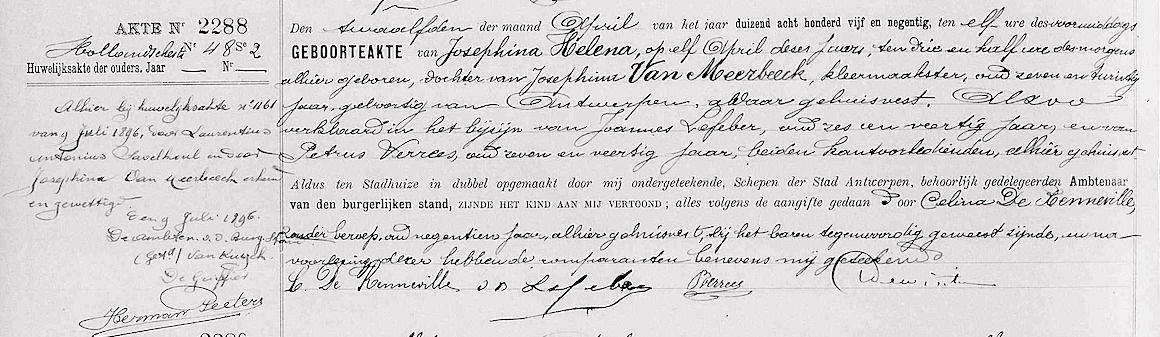 AKTE Nr 2288
Hollandstraat Nr 48 Se 2
Huwelijksakte der ouders, Jaar Nr
Alhier bij huwelijksakte nr 1161
van 9 Juli 1896, door Laurentius
Antonius en door
Josephina Van Meerbeeck erkend
en gewettigd
Den 9 Juli 1896.
De Ambten. v. d. Burg. Stand
(Get.)
De Griffier
Herman Peeters
Den twaalfden der maand April van het jaar duizend acht honderd vijf en negentig, ten elf ure des voormiddags
GEBOORTEAKTE van Josephina Helena, op elf April dezes jaars, ten drie en half ure des morgens
alhier geboren, dochter van Josephina Van Meerbeeck, kleermaakster, oud zeven en twintig
jaar, geboortig van Antwerpen, aldaar gehuisvest. Alzoo
verklaard in het bijzijn van Joannes Lefeber, oud zes en veertig jaar, en van
Petrus Verrees, oud zeven en veertig jaar, beiden kantoorbedienden, alhier gehuisvest.
Aldus ten Stadhuize in dubbel opgemaakt door mij ondergeteekende, Schepen der Stad Antwerpen, behoorlijk gedelegeerden Ambtenaar
van den burgerlijken stand, ZIJNDE HET KIND AAN MIJ VERTOOND ; alles volgens de aangifte gedaan door Celina De Kenneville,
zonder beroep, oud negentien jaar, alhier gehuisvest, bij het baren tegenwoordig geweest zijnde, en na
voorlezing dezer hebben de comparanten benevens mij geteekend
C. De Kenneville Lefeber PVerrees Dewint
2288